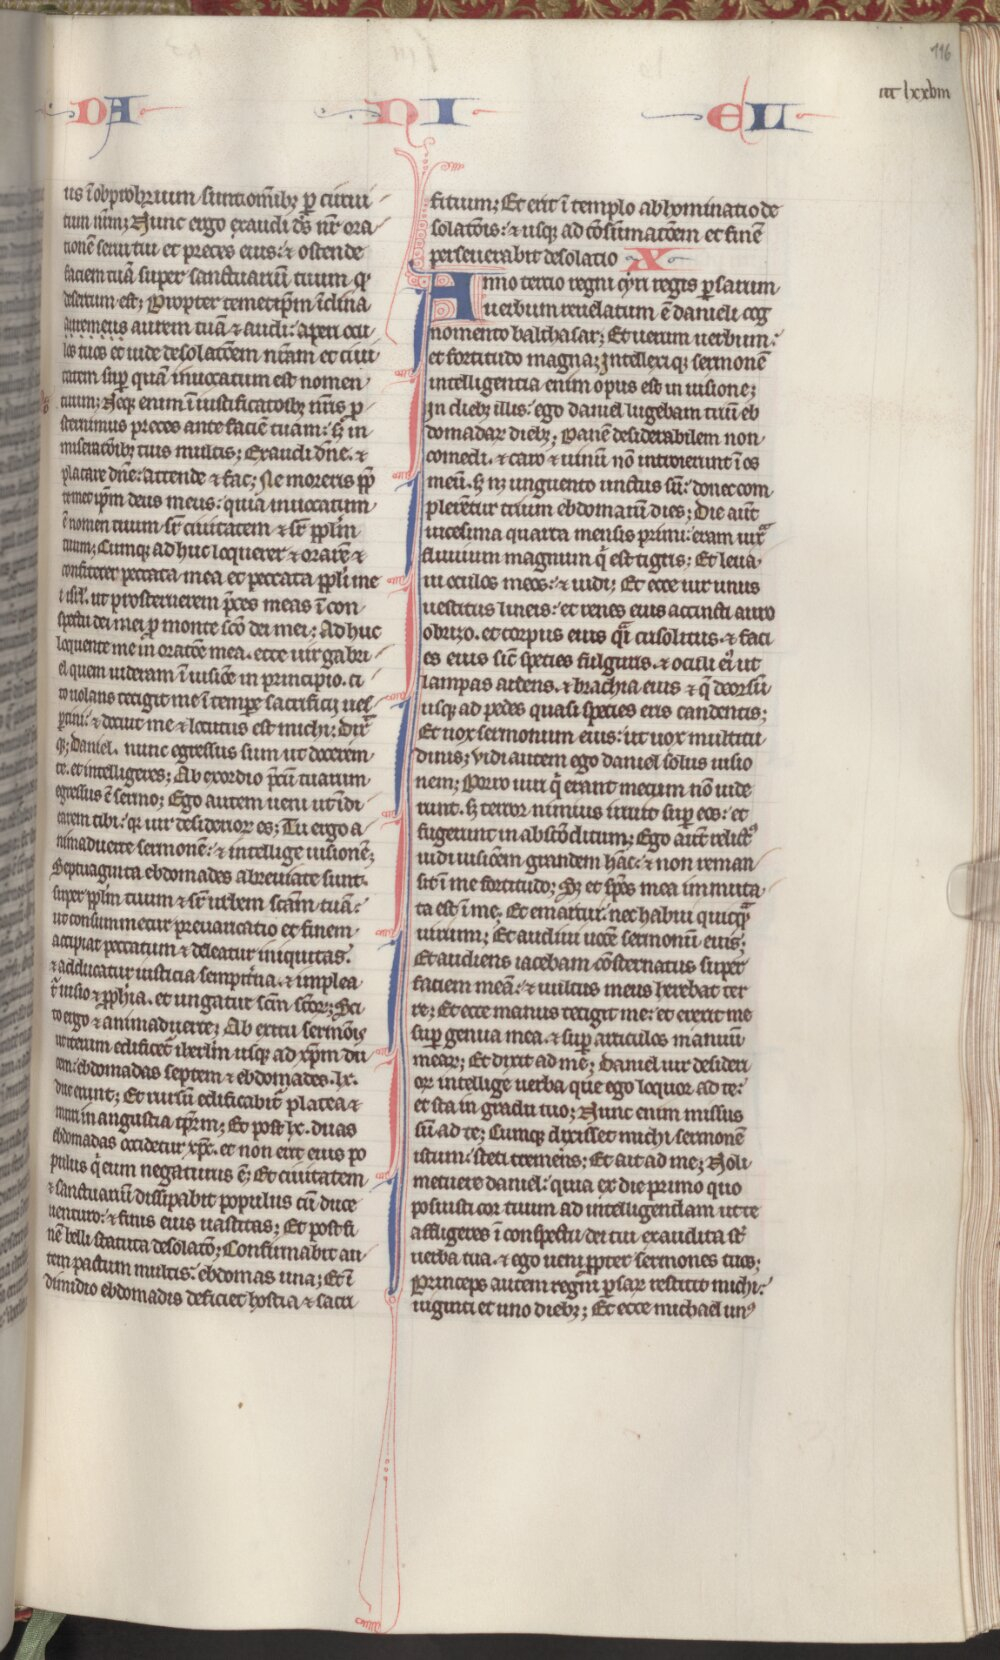 116
iiii lxxviii
DA NI EL
us i obprobrium sunt omnibꝫ ꝑ circui
tum nrm; Nunc ergo exaudi ds nr ora
tionē serui tui et preces eius: ⁊ ostende
faciem tuā super sanctuariū tuum qͥ
desertum est; Propter temetip̄m īclina
deus meus aurem tuā ⁊ audi: aperi ocu
los tuos et uide desolatōem nrām et ciui
tatem suꝑ quā inuocatum est nomen
tuum; Neqꝫ enim ī iustificatōibꝫ nrīs ꝓ
sternimus preces ante faciē tuam: s̄ in
miseratōibꝫ tuis multis; Exaudi dn̄e. ⁊
placare dn̄e: attende ⁊ fac; Ne moreris ꝓꝑ
temet ip̄m deus meus: quia inuocatum
ē nomen tuum sr̄ ciuitatem ⁊ sr̄ pplm̄
tuum; Cumqꝫ ad huc loquerer ⁊ orarē ⁊
confiterer peccata mea et peccata ppl̄i me
i isrl̄. ut prosternerem p̄ces meas ī con
spectu dei mei ꝓ monte scō dei mei; Ad huc
loquente me in oratōe mea. ecce uir gabri
el quem uideram ī uisiōe in principio. ci
to uolans tetigit me ī tempe sacrificij ues
ꝑtini: ⁊ docuit me ⁊ locutus est michi; Dix̄
qꝫ; Daniel. nunc egressus sum ut docerem
te. et intelligeres; Ab exordio p̄cū tuarum
egressus ē sermo; Ego autem ueni ut īdi
carem tibi: qr uir desiderioꝝ es; Tu ergo a
nimaduerte sermonē: ⁊ intellige uisionē;
Septuaginta ebdomades abreuiate sunt.
super pplm̄ tuum ⁊ sr̄ urbem scām tuā:
ut consummetur preuaricatio et finem
accipiat peccatum ⁊ deleatur iniquitas.
⁊ adducatur iusticia sempit̄na. ⁊ implea
t̄ uisio ⁊ ꝓphīa. et ungatur scūs scōꝝ; Sci
to ergo ⁊ animaduerte; Ab exitu sermōis
ut iterum edificet̄ ihrlm̄ usqꝫ ad xp̄m du
cem: ebdomadas septem ⁊ ebdomades. lx.
due erunt; Et rursū edificabit̄ platea ⁊
muri in angustia tꝑm̄; Et post lx. duas
ebdomadas occidetur xp̄c. et non erit eius po
pulus q̇ eum negaturus ē; Et ciuitatem
⁊ sanctuariū dissipabit populus cū duce
uenturo: ⁊ finis eius uastitas; Et post fi
nē belli statuta desolatō; Confirmabit au
tem pactum multis. ebdomas una; Et ī
dimidio ebdomadis deficiet hostia ⁊ sacri
ficium; Et erit ī templo abhominatio de
solatōis: ⁊ usqꝫ ad cōsūmatōem et finē
perseuerabit desolatio X
Anno tercio regni cyri regis ꝑsarum
uerbum reuelatum ē danieli cog
nomento balthasar; Et uerum uerbum:
et fortitudo magna; Intellexitqꝫ sermonē
intelligentia enim opus est in uisione;
In diebꝫ illis: ego daniel lugebam triū eb
domadaꝝ diebꝫ; Panē desiderabilem non
comedi. ⁊ caro ⁊ uinū nō introierunt ī os
meū. s̄ nꝫ unguento unctus sū: donec com
plerētur trium ebdomarū dies; Die aūt
uicesima quarta mensis primi: eram iuxᵃ
fluuium magnum q̇ est tigris; Et leua
ui oculos meos: ⁊ uidi; Et ecce uir unus
uestitus lineis: et renes eius accincti auro
obrizo. et corpus eius qͣi crisolitus. ⁊ faci
es eius sicī species fulguris. ⁊ oculi eiꝰ ut
lampas ardens. ⁊ brachia eius ⁊ q̄ deorsū
usqꝫ ad pedes quasi species eris candentis;
Et uox sermonum eius: ut uox multitu
dinis; Vidi autem ego daniel solus uisio
nem; Porro uiri q̇ erant mecum nō uide
runt. s̄ terror nimius irruit suꝑ eos: et
fugerunt in abscōditum; Ego aūt relictꝰ
uidi uisiōem grandem hāc: ⁊ non reman
sit ī me fortitudo; Sꝫ et spēs mea immuta
ta est ī me. Et emarcui. nec habui quicqᵃ
uirium; Et audiui uocē sermonū eius;
Et audiens iacebam cōsternatus super
faciem meā: ⁊ uultus meus herebat ter
re; Et ecce manus tetigit me: et erexit me
suꝑ genua mea. ⁊ suꝑ articulos manuū
meaꝝ; Et dixit ad me; Daniel uir desideri
oꝝ intellige uerba que ego loquor ad te:
et sta in gradu tuo; Nunc enim missus
sū ad te; Cumqꝫ dixisset michi sermonē
istum: steti tremens; Et ait ad me; Noli
metuere daniel: quia ex die primo quo
posuisti cor tuum ad intelligendam ut te
affligeres ī conspectu dei tui exaudita sт̄
uerba tua. ⁊ ego ueni ꝓpter sermones tuos;
Princeps autem regni ꝑsaꝝ restitit michi:
uiginti et uno diebꝫ; Et ecce michael unꝰ